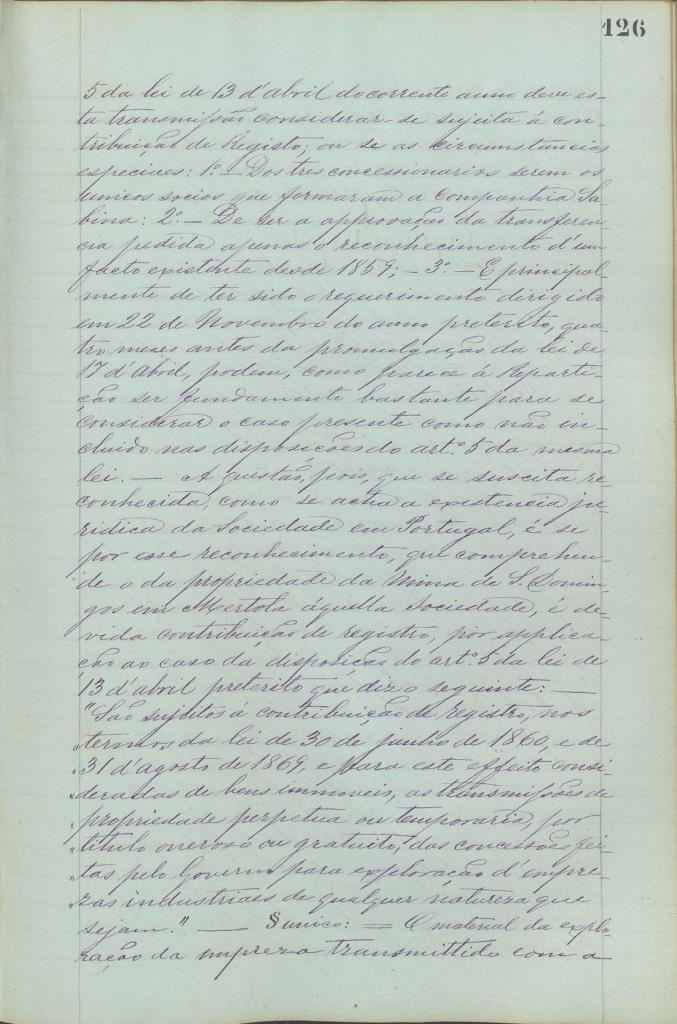 126
5 da lei de 13 d'abril do corrente anno deve es-
ta transmissão considerar-se sujeita á con-
tribuição de Registo; ou se as circumstancias
especiaes: 1º — Dos tres concessionarios serem os
unicos socios que formaram a Companhia Sa-
bina: 2º — De ser a approvação da transferen-
cia pedida apenas o reconhecimento d'um
facto existente desde 1859; — 3º — E principal-
mente de ter sido o requerimento dirigido
em 22 de Novembro do anno preterito, qua-
tro mezes antes da promulgação da lei de
17 d'Abril, podem, como parece á Reparti-
ção ser fundamento bastante para se
considerar o caso presente como não in-
cluido nas disposições do artº 5 da mesma
lei. — A questão, pois, que se suscita re-
conhecida, como se acha a existencia ju-
ridica da Sociedade em Portugal, é se
por esse reconhecimento, que comprehen-
de o da propriedade da Mina de S. Domin-
gos em Mertola áquella Sociedade, é de-
vida contribuição de registro, por applica-
ção ao caso da disposição do artº 5 da lei de
13 d'abril preterito que diz o seguinte: —
"São sujeitos á contribuição de registro, nos
"termos da lei de 30 de junho de 1860, e de
"31 d'agosto de 1869, e para este effeito consi-
"deradas de bens immoveis, as transmissões de
"propriedade perpetua ou temporaria, por
"titulo oneroso ou gratuito, das concessões fei-
"tas pelo Governo para exploração d'empre-
"zas industriaes de qualquer natureza que
sejam." — § unico: = O material da explo-
ração da impreza transmittido com a